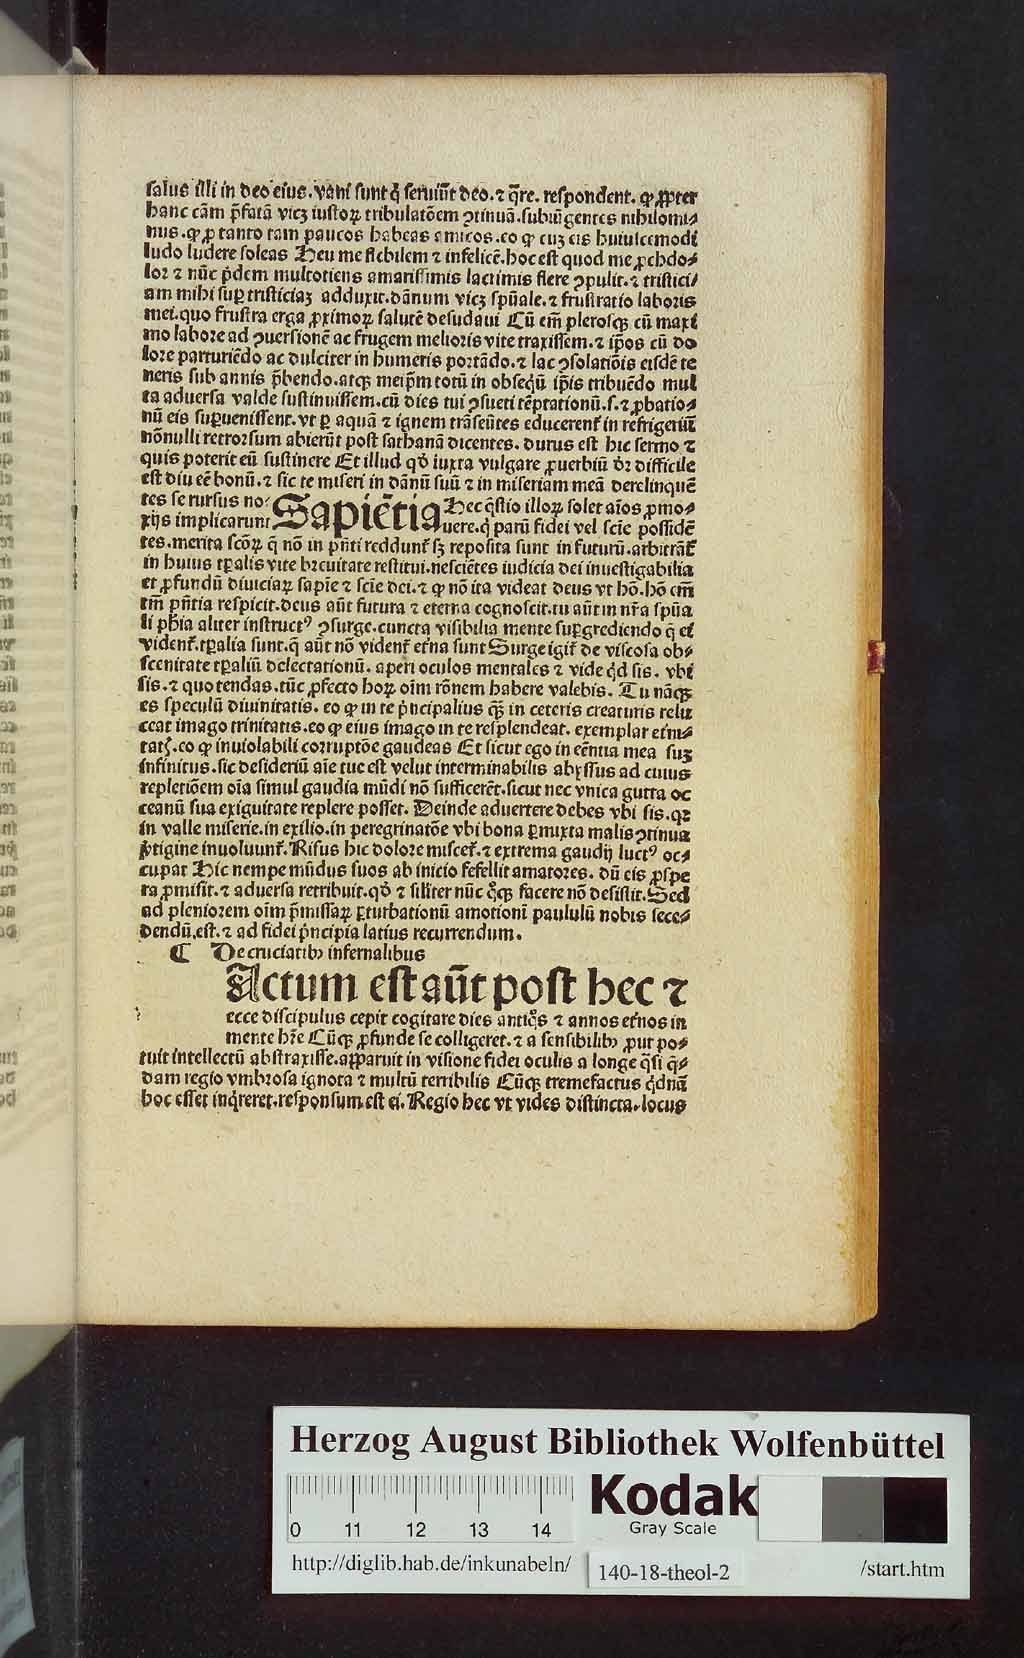 salus illi in deo eius. vani sunt q̇ seruiūt deo. ⁊ q̄re. respondent. ꝙ ꝓpter
hanc cām p̄fatā vicꝫ iustoꝝ tribulatōem ꝯtinuā. subiūgentes nihilomi⸗
nus. ꝙ ꝓ tanto tam paucos habeas amicos. eo ꝙ cuꝫ eis huiuscemodi
ludo ludere soleas Heu me flebilem ⁊ infelicē. hoc est quod me ꝓchdo⸗
lor ⁊ nūc p̄dem multotiens amarissimis lacrimis flere ꝯpulit. ⁊ tristici⸗
am mihi suꝑ tristiciaꝫ adduxit. dānum vicꝫ sp̄uale. ⁊ frustratio laboris
mei. quo frustra erga ꝓximoꝝ salutē desudaui Cū em̄ plerosqꝫ cū maxi
mo labore ad ꝯuersionē ac frugem melioris vite traxissem. ⁊ ip̄os cū do
lore parturiēdo ac dulciter in humeris portādo. ⁊ lac ꝯsolatiōis eisdē te
neris sub annis p̄bendo. atqꝫ meip̄m totū in obseq̇ū ip̄is tribuēdo mul
ta aduersa valde sustinuissem. cū dies tui ꝯsueti tēptationū. s. ⁊ ꝓbatio⸗
nū eis suꝑuenissent. vt ꝑ aquā ⁊ ignem trāseūtes educerent᷑ in refrigeriū
nōnulli retrorsum abierūt post sathanā dicentes. durus est hic sermo ⁊
quis poterit eū sustinere Et illud qd̓ iuxta vulgare ꝓuerbiū dr̄ difficile
est diu eē bonū. ⁊ sic te miseri in dānū suū ⁊ in miseriam meā derelinquē
tes se rursus no⸗
xijs implicarunt
Sapiētia
Hec q̄stio illoꝝ solet aīos ꝓmo⸗
uere. q̇ parū fidei vel scīe possidē
tes. merita scōꝝ q̄ nō in p̄nti reddunt᷑ sꝫ reposita sunt in futurū. arbitrāt᷑
in huius tꝑalis vite breuitate restitui. nesciētes iudicia dei inuestigabilia
et ꝓfundū diuiciaꝝ sapīe ⁊ scīe dei. ⁊ ꝙ nō ita videat deus vt hō. hō em̄
tm̄ p̄ntia respicit. deus aūt futura ⁊ eterna cognoscit. tu aūt in nr̄a sp̄ua
li ph̄ia aliter instructꝰ ꝯsurge. cuncta visibilia mente suꝑgrediendo q̄ ei
vident᷑. tꝑalia sunt. q̄ aūt nō vident᷑ et̓na sunt Surge igit᷑ de viscosa ob⸗
scenitate tꝑaliū delectationū. aperi oculos mentales ⁊ vide q̇d sis. vbi
sis. ⁊ quo tendas. tūc ꝓfecto hoꝝ oīm rōnem habere valebis. Tu nāqꝫ
es speculū diuinitatis. eo ꝙ in te p̓ncipalius qꝫ̄ in ceteris creaturis relu
ceat imago trinitatis. eo ꝙ eius imago in te resplendeat. exemplar et̓ni⸗
tatꝭ. eo ꝙ inuiolabili corruptōe gaudeas Et sicut ego in eēntia mea suꝫ
infinitus. sic desideriū aīe tue est velut interminabilis abyssus ad cuius
repletiōem oīa simul gaudia mūdi nō sufficerēt. sicut nec vnica gutta oc
ceanū sua exiguitate replere posset. Deinde aduertere debes vbi sis. qꝛ
in valle miserie. in exilio. in peregrinatōe vbi bona ꝑmixta malis ꝯtinua
v̓tigine inuoluunt᷑. Risus hic dolore miscet᷑. ⁊ extrema gaudij luctꝰ oc⸗
cupat Hic nempe mūdus suos ab inicio fefellit amatores. dū eis ꝓspe
ra ꝓmisit. ⁊ aduersa retribuit. qd̓ ⁊ sīliter nūc qͦqꝫ facere nō desistit. Sed
ad pleniorem oīm p̄missaꝝ ꝑturbationū amotionī paululū nobis sece⸗
dendū. est. ⁊ ad fidei p̓ncipia latius recurrendum.
¶ De cruciatibꝫ infernalibus
Actum est aūt post hec ⁊
ecce discipulus cepit cogitare dies antiqͦs ⁊ annos et̓nos in
mente hr̄e Cūqꝫ ꝓfunde se colligeret. ⁊ a sensibilibꝫ ꝓut po⸗
tuit intellectū abstraxisse. apparuit in visione fidei oculis a longe q̄si q̄⸗
dam regio vmbrosa ignota ⁊ multū terribilis Cūqꝫ tremefactus q̇dnā
hoc esset inq̇reret. responsum est ei. Regio hec vt vides distincta. locus
Herzog August Bibliothek Wolfenbüttel
0 11 12 13 14
Kodak
Gray Scale
http://diglib.hab.de/inkunabeln/ 140-18-theol-2 /start.htm